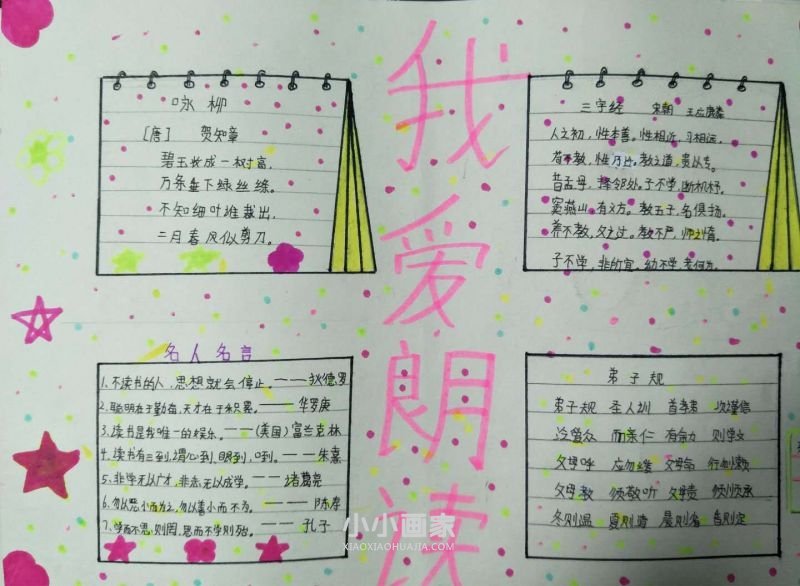 我爱朗读
咏柳
[唐] 贺知章
碧玉妆成一树高,
万条垂下绿丝绦。
不知细叶谁裁出,
二月春风似剪刀。
三字经 宋朝 王应麟
人之初,性本善。性相近,习相远,
苟不教,性乃迁。教之道,贵以专。
昔孟母,择邻处。子不学,断机杼。
窦燕山,有义方。教五子,名俱扬。
养不教,父之过。教不严,师之惰。
子不学,非所宜。幼不学,老何为。
名人名言
1.不读书的人,思想就会停止。——狄德罗
2.聪明在于勤奋,天才在于积累。——华罗庚
3.读书是我唯一的娱乐。——(美国)富兰克林
4.读书有三到,谓心到,眼到,口到。——朱熹
5.非学无以广才,非志无以成学。——诸葛亮
6.勿以恶小而为之,勿以善小而不为。——陈寿
7.学而不思则罔,思而不学则殆。——孔子
弟子规
弟子规 圣人训 首孝弟 次谨信
泛爱众 而亲仁 有余力 则学文
父母呼 应勿缓 父母命 行勿懒
父母教 须敬听 父母责 须顺承
冬则温 夏则凊 晨则省 昏则定
小小画家
XIAOXIAOHUAJIA.COM